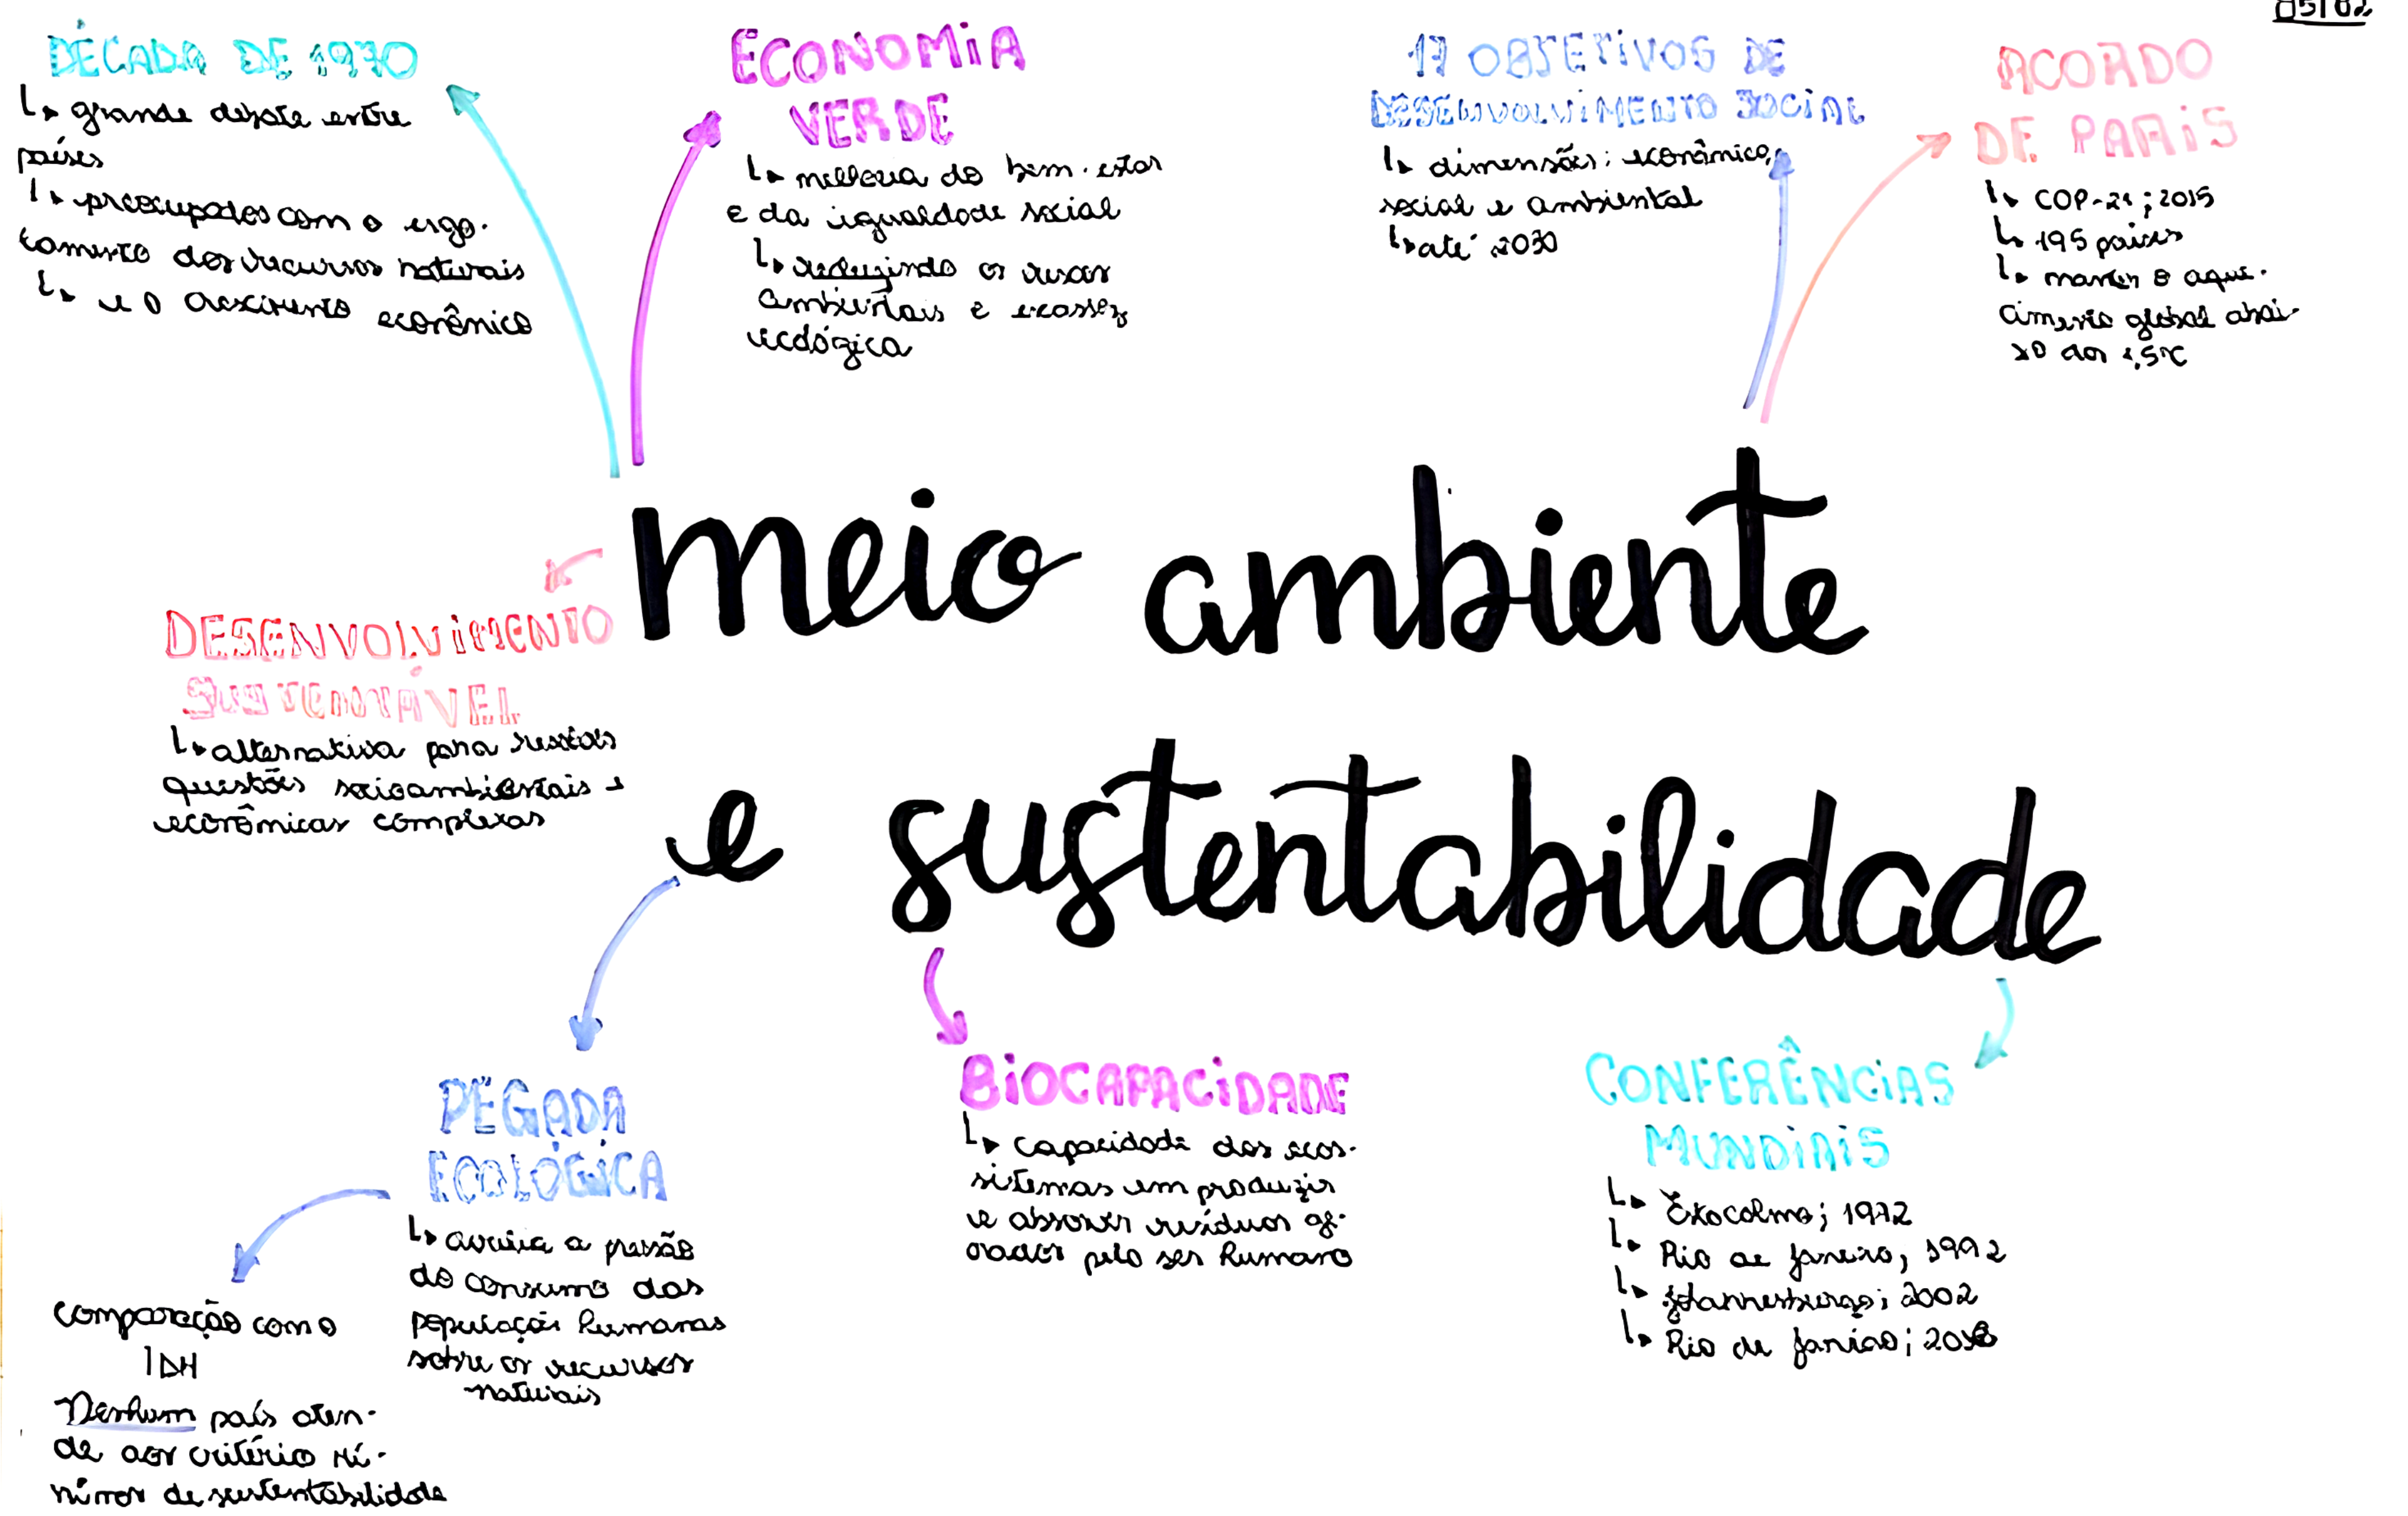 05/02
DÉCADA DE 1970
grande debate entre
países
preocupados com o esgo-
tamento dos recursos naturais
e o crescimento econômico
ECONOMIA
VERDE
melhoria do bem-estar
e da igualdade social
reduzindo os riscos
ambientais e escassez
ecológica
17 OBJETIVOS DE
DESENVOLVIMENTO SOCIAL
dimensões: econômica,
social e ambiental
até 2030
ACORDO
DE PARIS
COP-21; 2015
195 países
manter o aque-
cimento global abai-
xo dos 1,5°C
meio ambiente
e sustentabilidade
DESENVOLVIMENTO
SUSTENTÁVEL
alternativa para
questões socioambientais e
econômicas complexas
PEGADA
ECOLÓGICA
avalia a pressão
do consumo das
população humanas
sobre os recursos
naturais
comparação com o
IDH
Nenhum país aten-
de aos critério mí-
nimos de sustentabilidade
BIOCAPACIDADE
capacidade dos ecos-
sistemas em produzir
e absorver resíduos ge-
rados pelo ser humano
CONFERÊNCIAS
MUNDIAIS
Estocolmo; 1972
Rio de Janeiro; 1992
Johannesburgo; 2002
Rio de Janeiro;